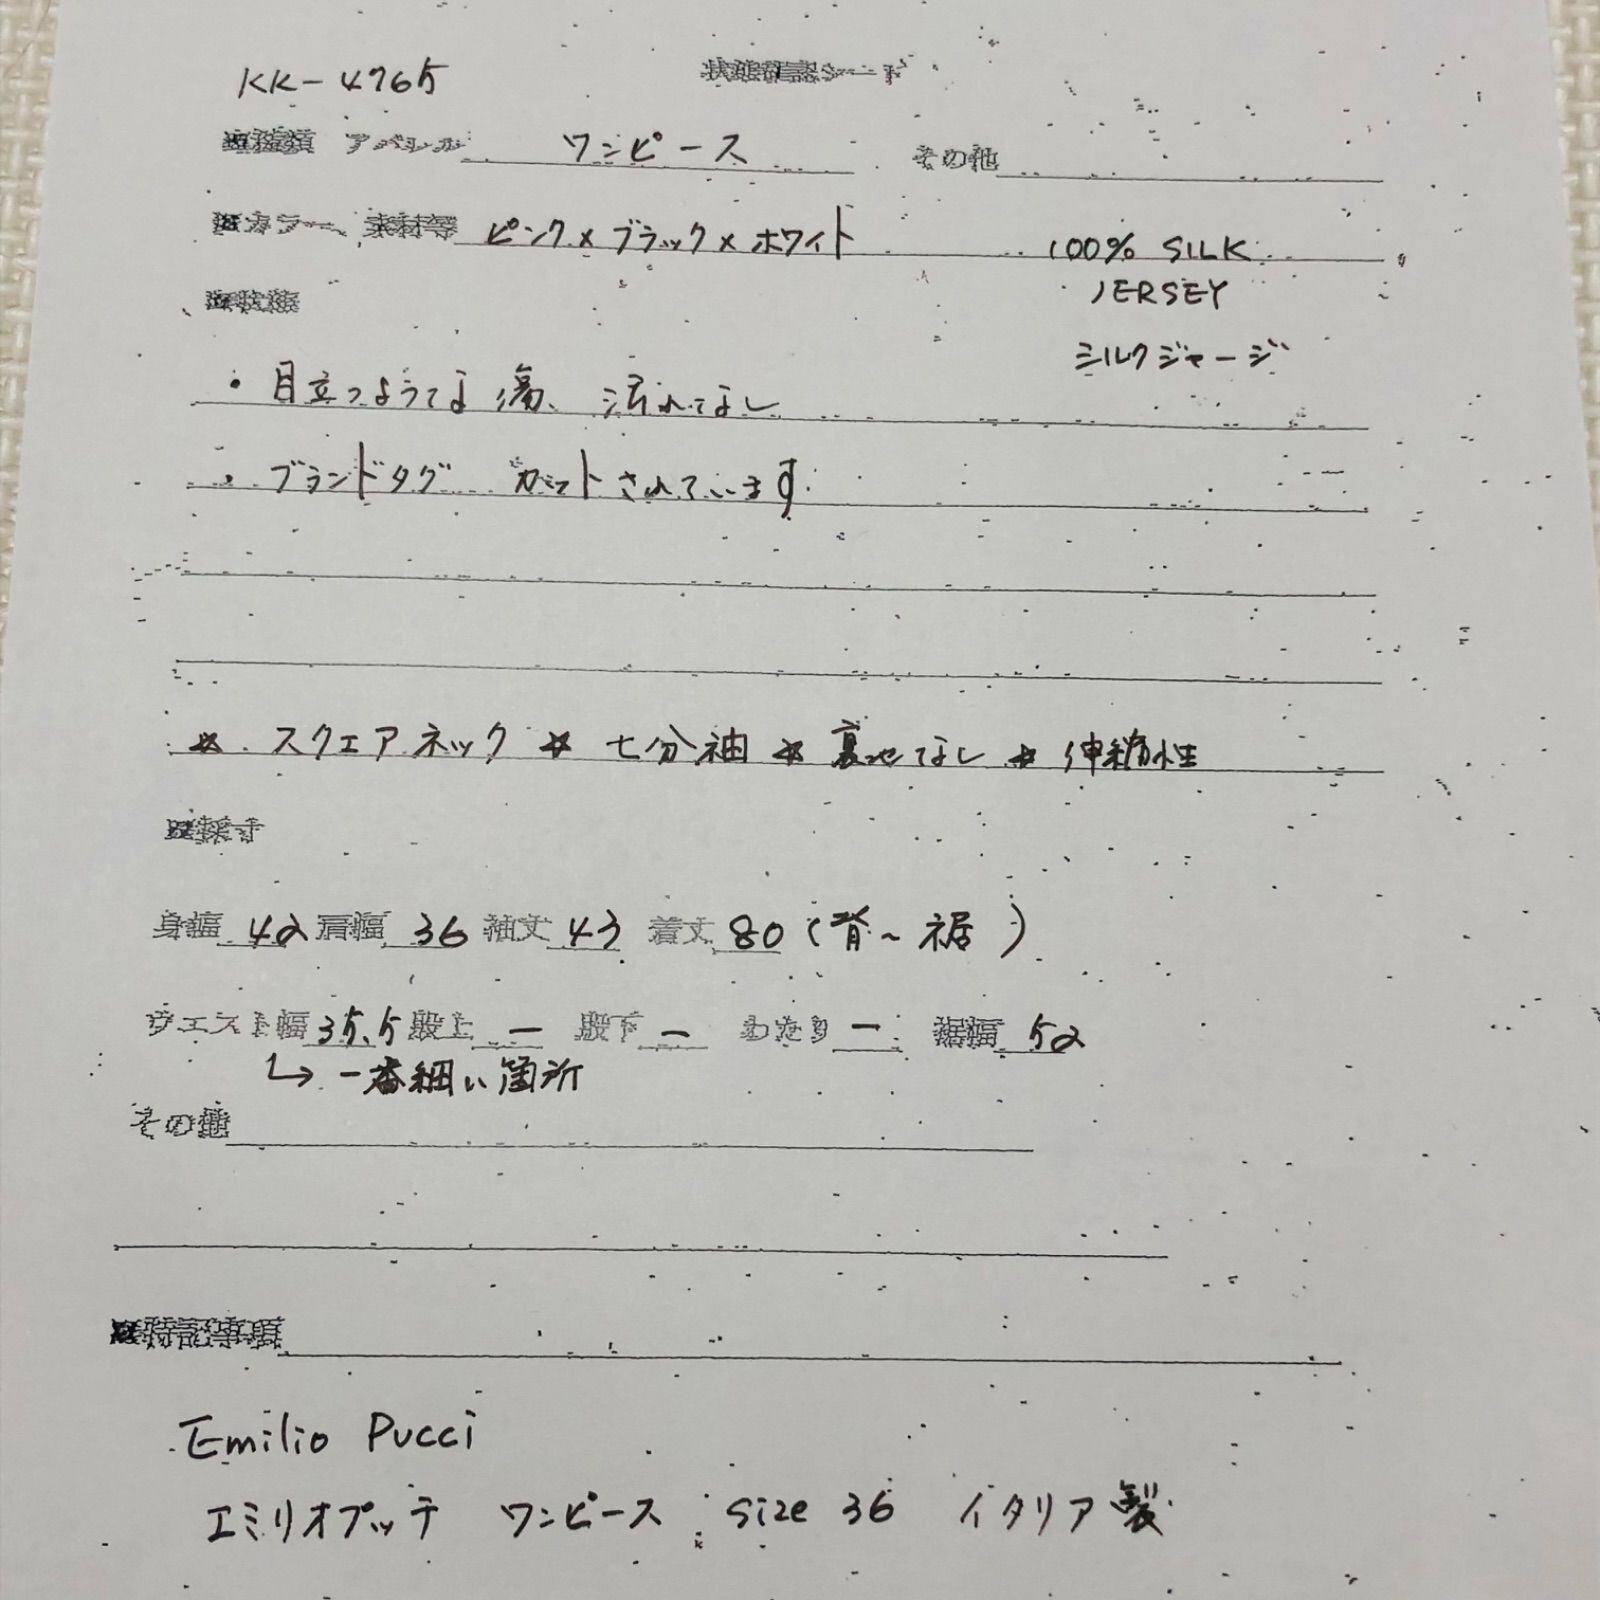 KK-4765 状態確認シート
■種類 アパレル ワンピース その他
■カラー、素材等 ピンク×ブラック×ホワイト 100% SILK
JERSEY
■状態
シルクジャージ
・目立つような傷、汚れてなし
・ブランドタグ カットされています
☆ スクエアネック ☆ 七分袖 ☆ 裏地なし ☆ 伸縮性
■採寸
身幅 42 肩幅 36 袖丈 43 着丈 80 (背~裾)
ウエスト幅 35.5 股上 ー 股下 ー わたり ー 裾幅 52
↳ 一番細い箇所
その他
■特記事項
Emilio Pucci
エミリオプッチ ワンピース size 36 イタリア製